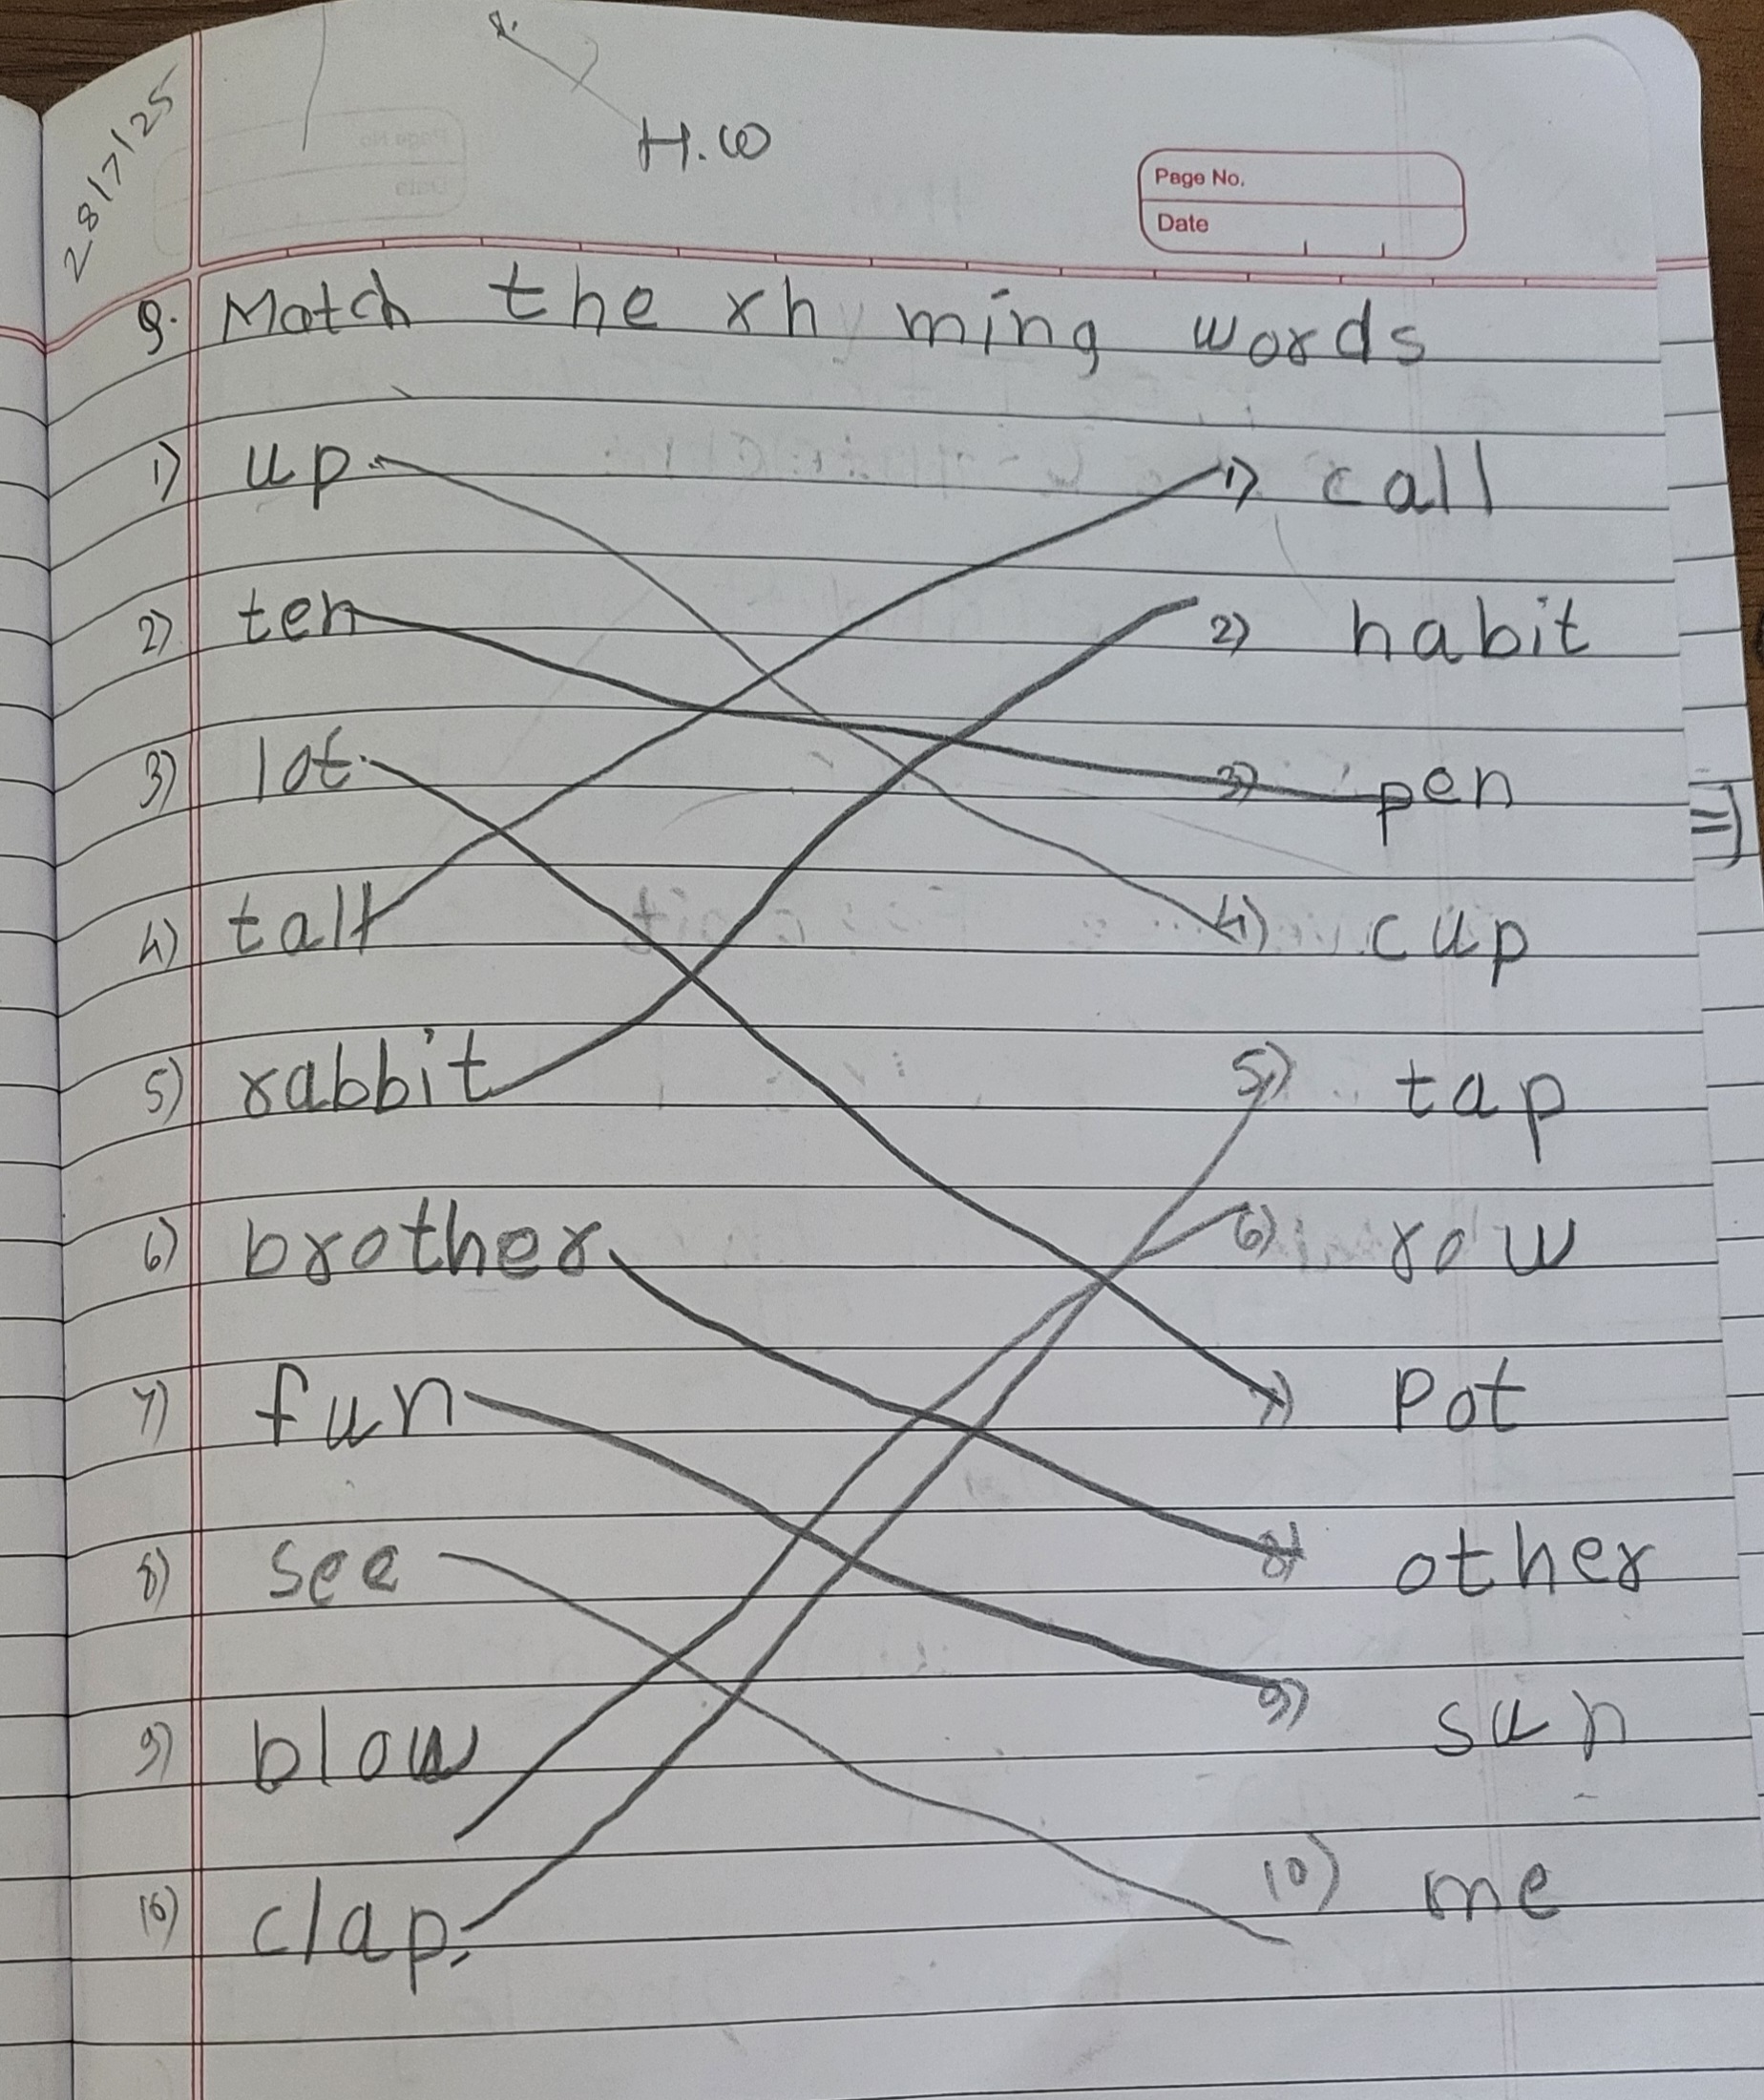 28/7/25
H.W
Page No.
Date
Q. Match the rhyming words
1) up 1) call
2) ten 2) habit
3) lot 3) pen
4) tall 4) cup
5) rabbit 5) tap
6) brother 6) row
7) fun 7) Pot
8) see 8) other
9) blow 9) sun
10) clap 10) me